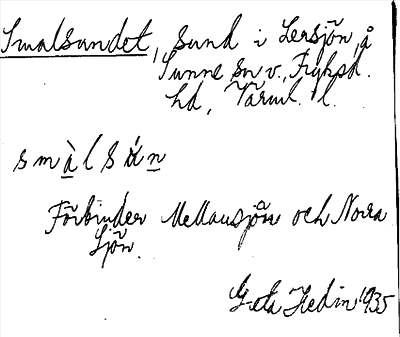 Smalsundet, sund i Lersjön, å
Sunne sn v., Fryksd.
hd, Värml. l.
smàlsún
Förbinder Mellansjön och Norra
Sjön.
Greta Hedin 1935